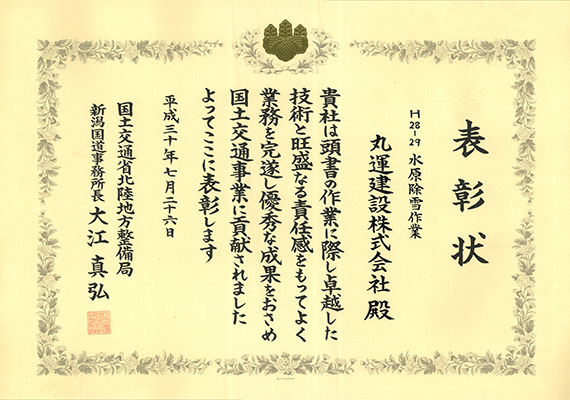 表彰状
H28-29 水原除雪作業
丸運建設株式会社 殿
貴社は頭書の作業に際し卓越した
技術と旺盛なる責任感をもってよく
業務を完遂し優秀な成果をおさめ
国土交通事業に貢献されました
よってここに表彰します
平成三十年七月二十六日
国土交通省北陸地方整備局
新潟国道事務所長 大江真弘